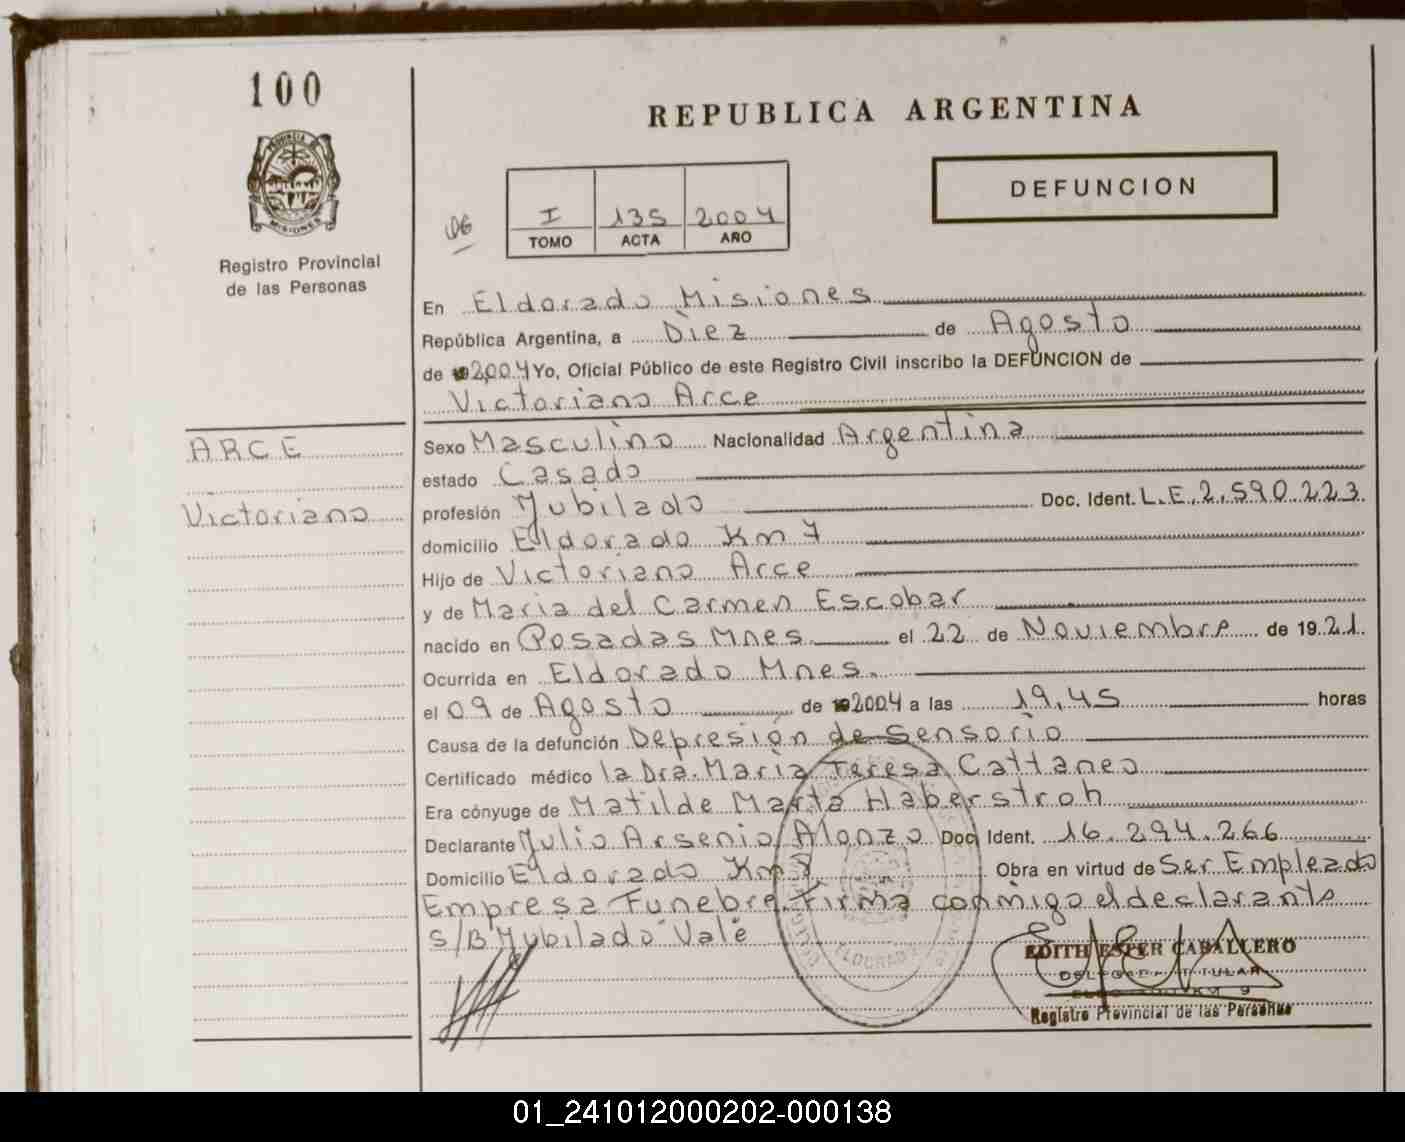 100
PROVINCIA DE
MISIONES
Registro Provincial
de las Personas
REPUBLICA ARGENTINA
DEFUNCION
I 135 2004
TOMO ACTA AÑO
En Eldorado Misiones
República Argentina, a Diez de Agosto
de 2004 Yo, Oficial Público de este Registro Civil inscribo la DEFUNCION de
Victoriano Arce
ARCE
Victoriano
Sexo Masculino Nacionalidad Argentina
estado Casado
profesión Jubilado Doc. Ident. L.E.2.590.223
domicilio Eldorado Km 7
Hijo de Victoriano Arce
y de Maria del Carmen Escobar
nacido en Posadas Mnes el 22 de Noviembre de 1921
Ocurrida en Eldorado Mnes.
el 09 de Agosto de 2004 a las 19,45 horas
Causa de la defunción Depresión de Sensorio
Certificado médico la Dra. Maria Teresa Cattaneo
Era cónyuge de Matilde Marta Haberstroh
Declarante Julio Arsenio Alonzo Doc. Ident. 16.294.266
Domicilio Eldorado Km Obra en virtud de Ser Empleado
Empresa Funebre. Firma conmigo el declarante
S/B "Jubilado" Vale
ELDORADO
EDITH ESTER CABALLERO
TITULAR
Registro Provincial de las Personas
01_241012000202-000138